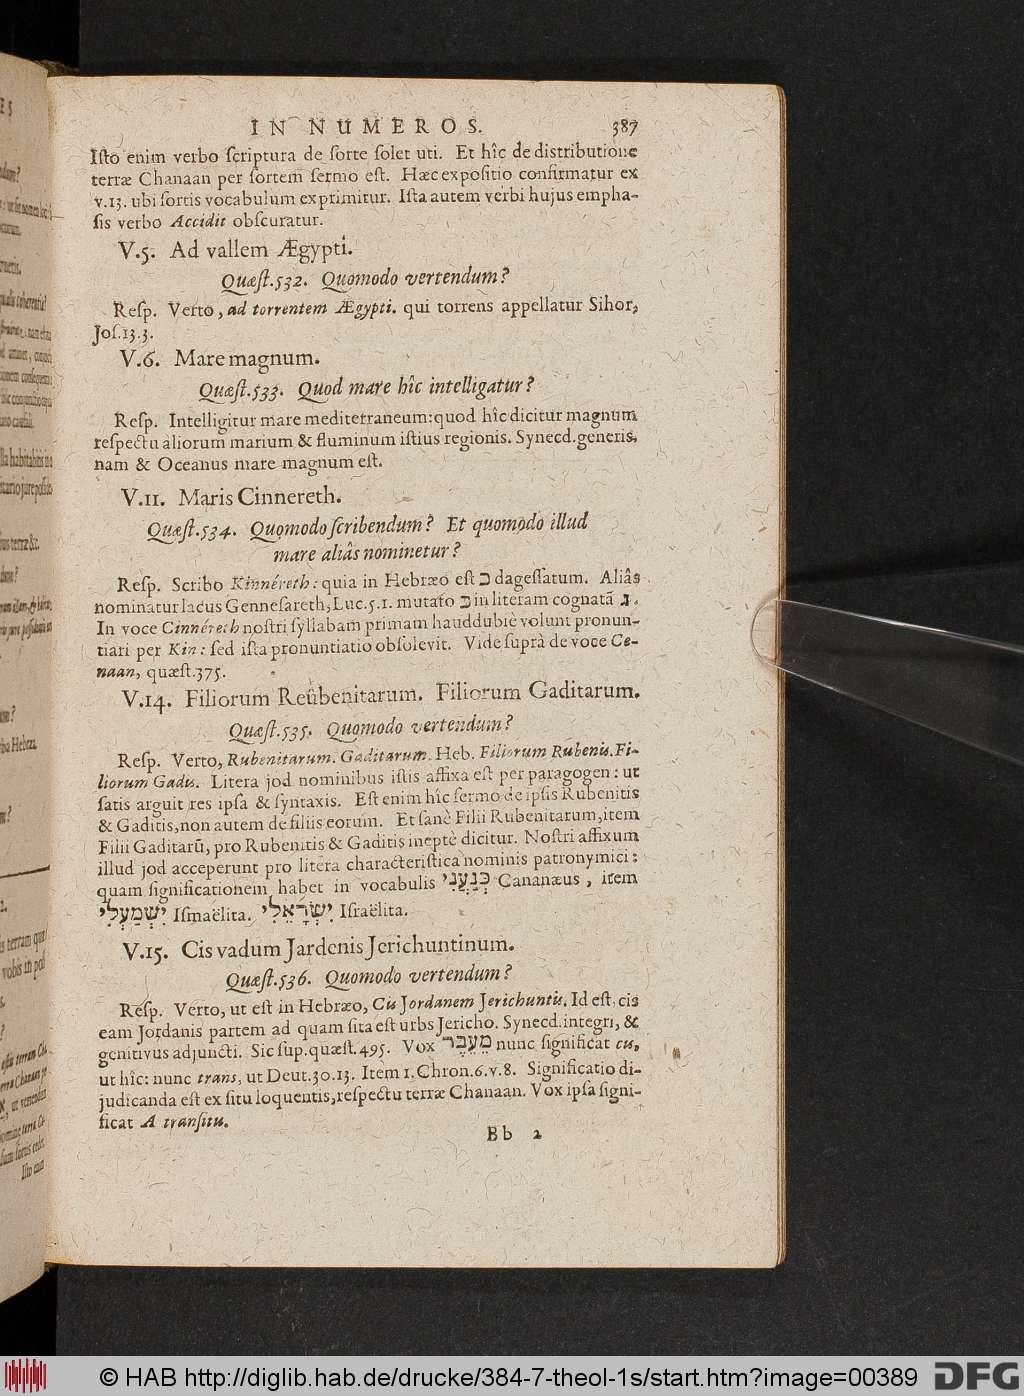 IN NUMEROS. 387
Iſto enim verbo ſcriptura de ſorte ſolet uti. Et hîc de distributione
terræ Chanaan per ſortem ſermo eſt. Hæc expoſitio confirmatur ex
v.13. ubi ſortis vocabulum exprimitur. Iſta autem verbi hujus empha-
ſis verbo Accidit obſcuratur.
V.5. Ad vallem Ægypti.
Quæſt.532. Quomodo vertendum?
Reſp. Verto, ad torrentem Ægypti. qui torrens appellatur Sihor,
Joſ.13.3.
V.6. Mare magnum.
Quæſt.533. Quod mare hîc intelligatur?
Reſp. Intelligitur mare mediterraneum: quod hîc dicitur magnum
reſpectu aliorum marium & fluminum iſtius regionis. Synecd.generis,
nam & Oceanus mare magnum eſt.
V.11. Maris Cinnereth.
Quæſt.534. Quomodo ſcribendum? Et quomodo illud
mare aliâs nominetur?
Reſp. Scribo Kinnéreth: quia in Hebræo eſt כ dageſſatum. Aliâs
nominatur lacus Genneſareth, Luc.5.1. mutato כ in literam cognatã ג.
In voce Cinnéreth noſtri ſyllabam primam hauddubiè volunt pronun-
tiari per Kin: ſed iſta pronuntiatio obſolevit. Vide ſuprà de voce Ce-
naan, quæſt.375.
V.14. Filiorum Reübenitarum. Filiorum Gaditarum.
Quæſt.535. Quomodo vertendum?
Reſp. Verto, Rubenitarum. Gaditarum. Heb. Filiorum Rubenis. Fi-
liorum Gadis. Litera jod nominibus iſtis affixa eſt per paragogen: ut
ſatis arguit res ipſa & ſyntaxis. Eſt enim hîc ſermo de ipſis Rubenitis
& Gaditis, non autem de filiis eorum. Et ſanè Filii Rubenitarum, item
Filii Gaditarũ, pro Rubenitis & Gaditis ineptè dicitur. Noſtri affixum
illud jod acceperunt pro litera characteriſtica nominis patronymici:
quam ſignificationem habet in vocabulis כְּנַעֲנִי Cananæus, item
יִשְׁמְעֵלִי Iſmaëlita. יִשְׂרָאֵלִי Iſraëlita.
V.15. Cis vadum Jardenis Jerichuntinum.
Quæſt.536. Quomodo vertendum?
Reſp. Verto, ut eſt in Hebræo, Cis Jordanem Jerichuntis. Id eſt, cis
eam Jordanis partem ad quam ſita eſt urbs Jericho. Synecd.integri, &
genitivus adjuncti. Sic ſup.quæſt.495. Vox מֵעֵבֶר nunc ſignificat cis,
ut hîc: nunc trans, ut Deut.30.13. Item 1.Chron.6.v.8. Significatio di-
judicanda eſt ex ſitu loquentis, reſpectu terræ Chanaan. Vox ipſa ſigni-
ficat A tranſitu.
Bb 2
© HAB http://diglib.hab.de/drucke/384-7-theol-1s/start.htm?image=00389 DFG